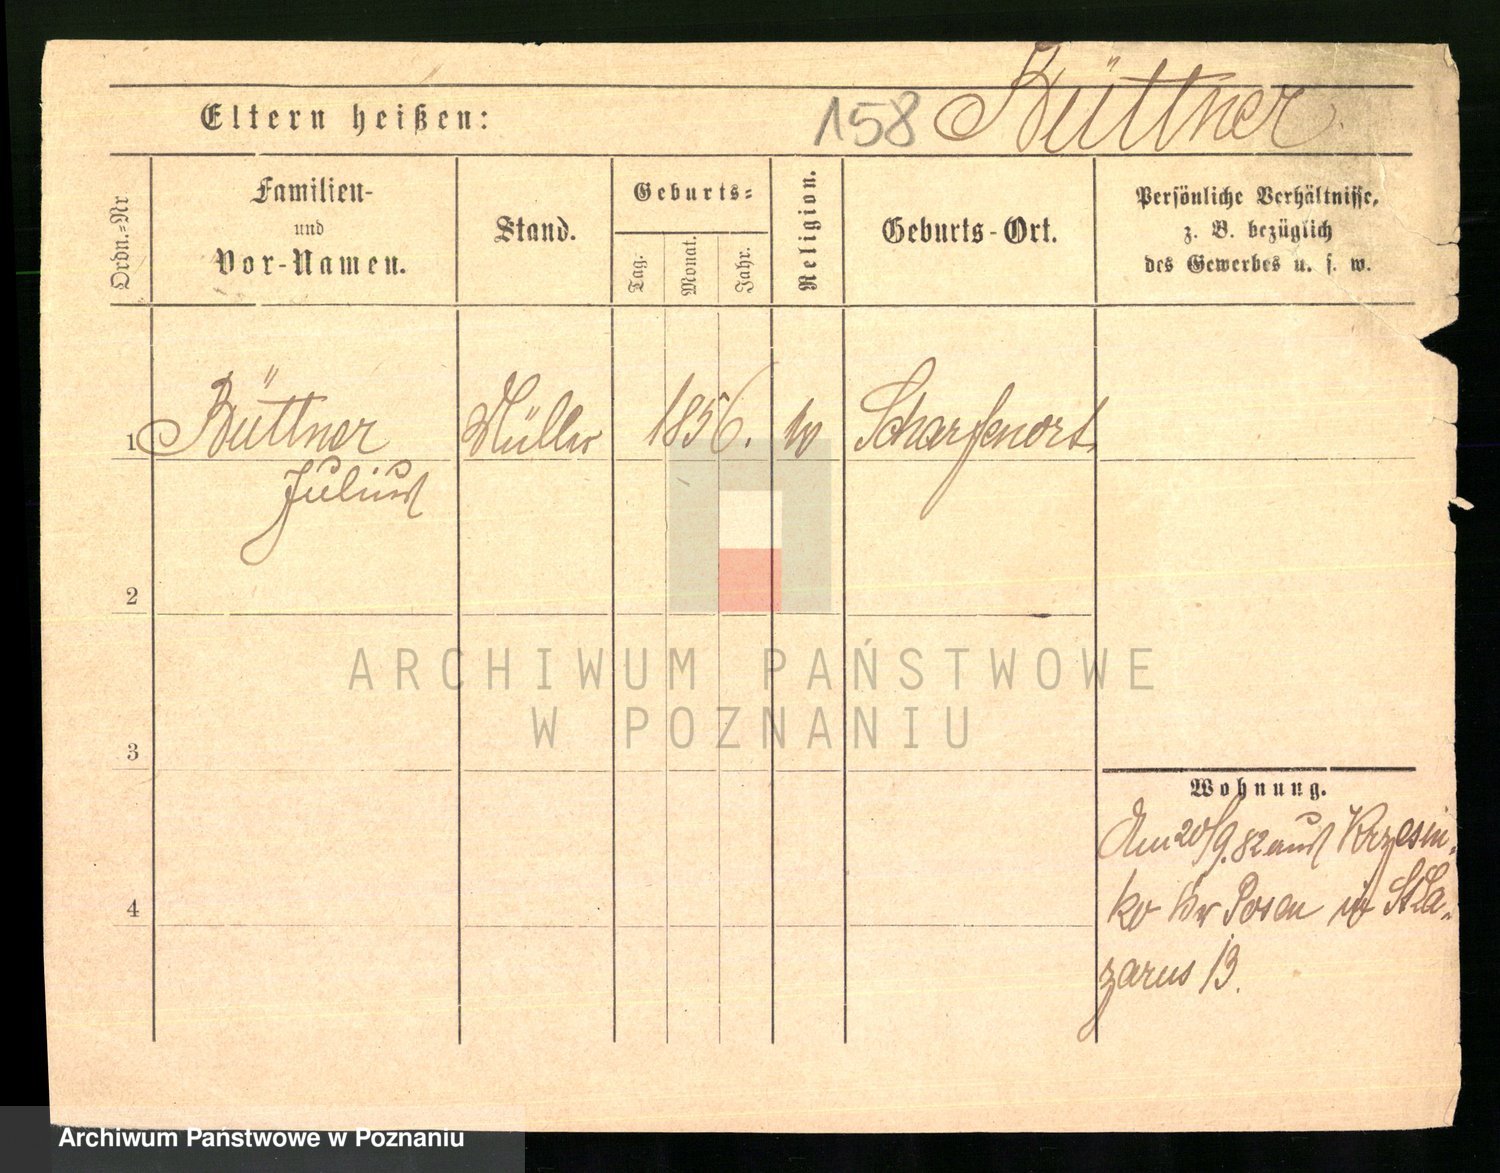 158 Büttner
Eltern heißen:
Ordn.=Nr
Familien-
und
Vor-Namen.
Stand.
Geburts=
Tag.
Monat.
Jahr.
Religion.
Geburts-Ort.
Persönliche Verhältnisse,
z. B. bezüglich
des Gewerbes u. s. w.
1 Büttner Müller 1856. Scharfenort
Julius
2
3
4
Wohnung.
Am 20/9.82 aus Krzesin-
ko Kr Posen in St La-
zarus 13.
ARCHIWUM PAŃSTWOWE
W POZNANIU
Archiwum Państwowe w Poznaniu